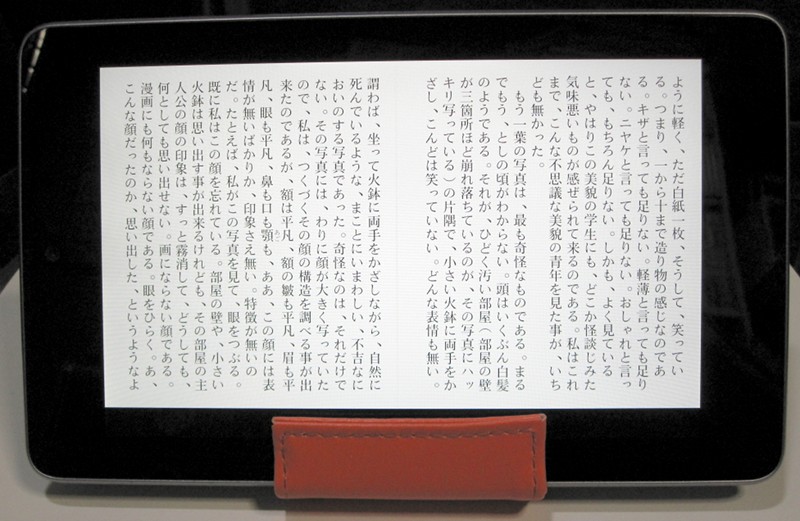 ように軽く、ただ白紙一枚、そうして、笑ってい
る。つまり、一から十まで造り物の感じなのであ
る。キザと言っても足りない。軽薄と言っても足り
ない。ニヤケと言っても足りない。おしゃれと言っ
ても、もちろん足りない。しかも、よく見ている
と、やはりこの美貌の学生にも、どこか怪談じみた
気味悪いものが感ぜられて来るのである。私はこれ
まで、こんな不思議な美貌の青年を見た事が、いち
ども無かった。
もう一葉の写真は、最も奇怪なものである。まる
でもう、としの頃がわからない。頭はいくぶん白髪
のようである。それが、ひどく汚い部屋（部屋の壁
が三箇所ほど崩れ落ちているのが、その写真にハッ
キリ写っている）の片隅で、小さい火鉢に両手をか
ざし、こんどは笑っていない。どんな表情も無い。
謂わば、坐って火鉢に両手をかざしながら、自然に
死んでいるような、まことにいまわしい、不吉なに
おいのする写真であった。奇怪なのは、それだけで
ない。その写真には、わりに顔が大きく写っていた
ので、私は、つくづくその顔の構造を調べる事が出
来たのであるが、額は平凡、額の皺も平凡、眉も平
凡、眼も平凡、鼻も口も顎も、ああ、この顔には表
情が無いばかりか、印象さえ無い。特徴が無いの
だ。たとえば、私がこの写真を見て、眼をつぶる。
既に私はこの顔を忘れている。部屋の壁や、小さい
火鉢は思い出す事が出来るけれども、その部屋の主
人公の顔の印象は、すっと霧消して、どうしても、
何としても思い出せない。画にならない顔である。
漫画にも何もならない顔である。眼をひらく。あ、
こんな顔だったのか、思い出した、というようなよ